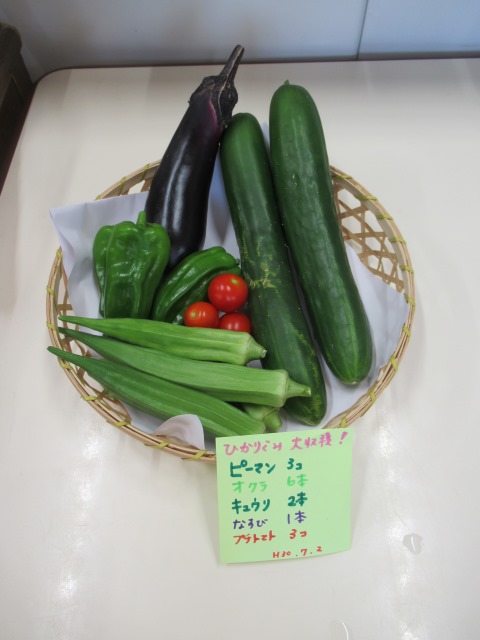 ひかりぐみ 大収穫!
ピーマン 3コ
オクラ 6本
キュウリ 2本
なすび 1本
プチトマト 3コ
H30.7.2